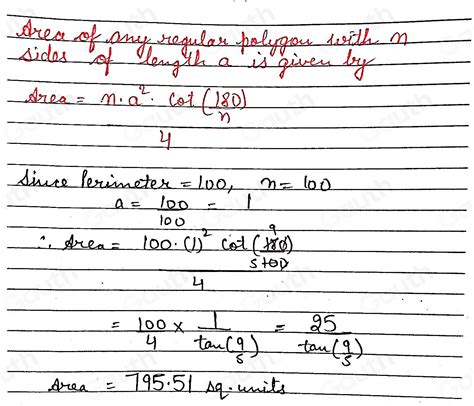 Area of any regular polygon with n
sides of length a is given by
Area = n·a²· cot(180/n) / 4
Since Perimeter = 100, n = 100
a = 100/100 = 1
∴ Area = 100·(1)² cot(180/5100) / 4
= 100/4 × 1/tan(9/5) = 25/tan(9/5)
Area = 795.51 sq. units